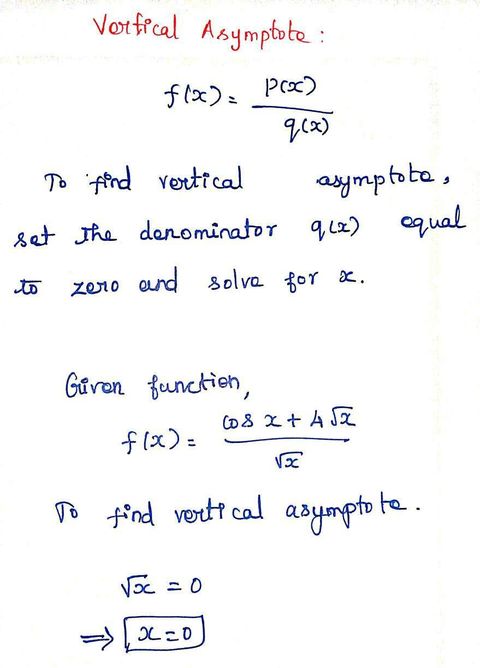 Vertical Asymptote :
f(x) = p(x) / q(x)
To find vertical asymptote,
set the denominator q(x) equal
to zero and solve for x.
Given function,
f(x) = cos x + 4√x / √x
To find vertical asymptote.
√x = 0
⇒ x=0